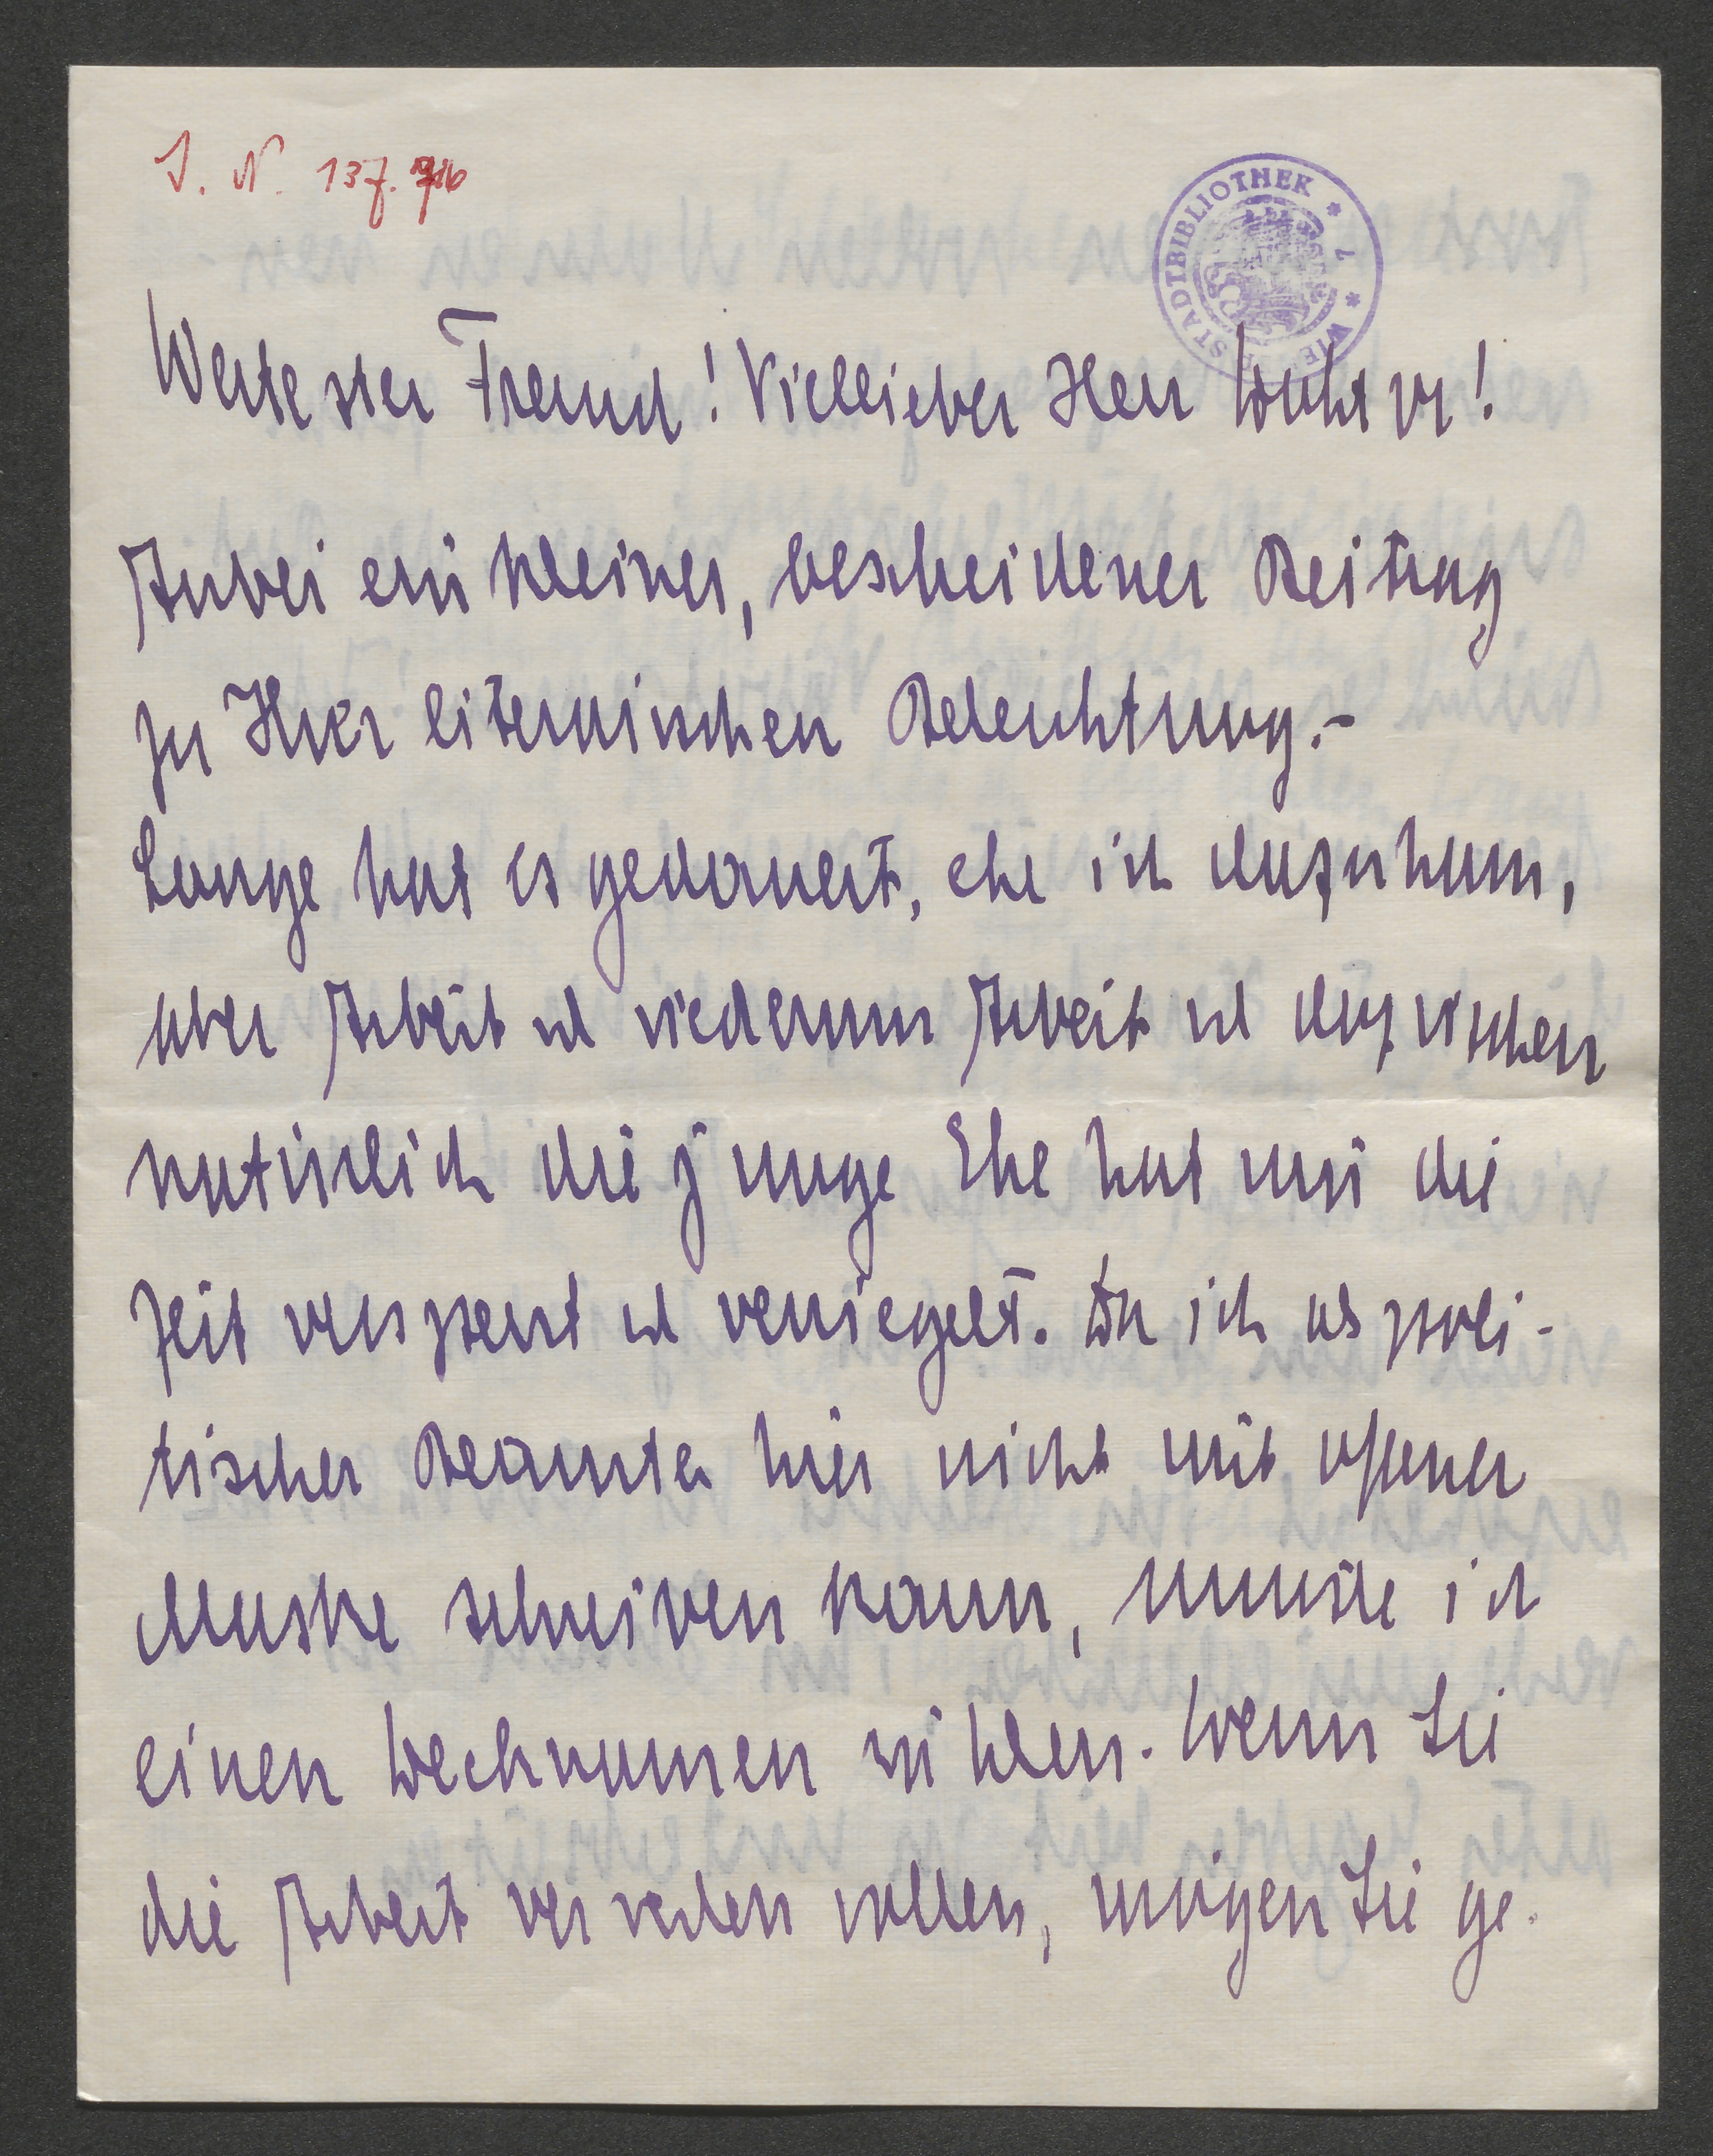 J. N. 137.716
STADTBIBLIOTHEK * 7 * WIEN
Wertester Freund! Viellieber Herr Doktor!
Anbei ein kleiner, bescheidener Beitrag
zu Ihrer literarischen Beleuchtung.-
Lange hat es gedauert, ehe ich dazu kam,
aber Arbeit und wiederum Arbeit und dazwischen
natürlich die junge Ehe hat mir die
Zeit versperrt und verriegelt. Da ich als poli-
tischer Beamter hier nicht mit offener
Maske schreiben kann, musste ich
einen Decknamen wählen. Wenn Sie
die Arbeit verwerten wollen, mögen Sie ge-